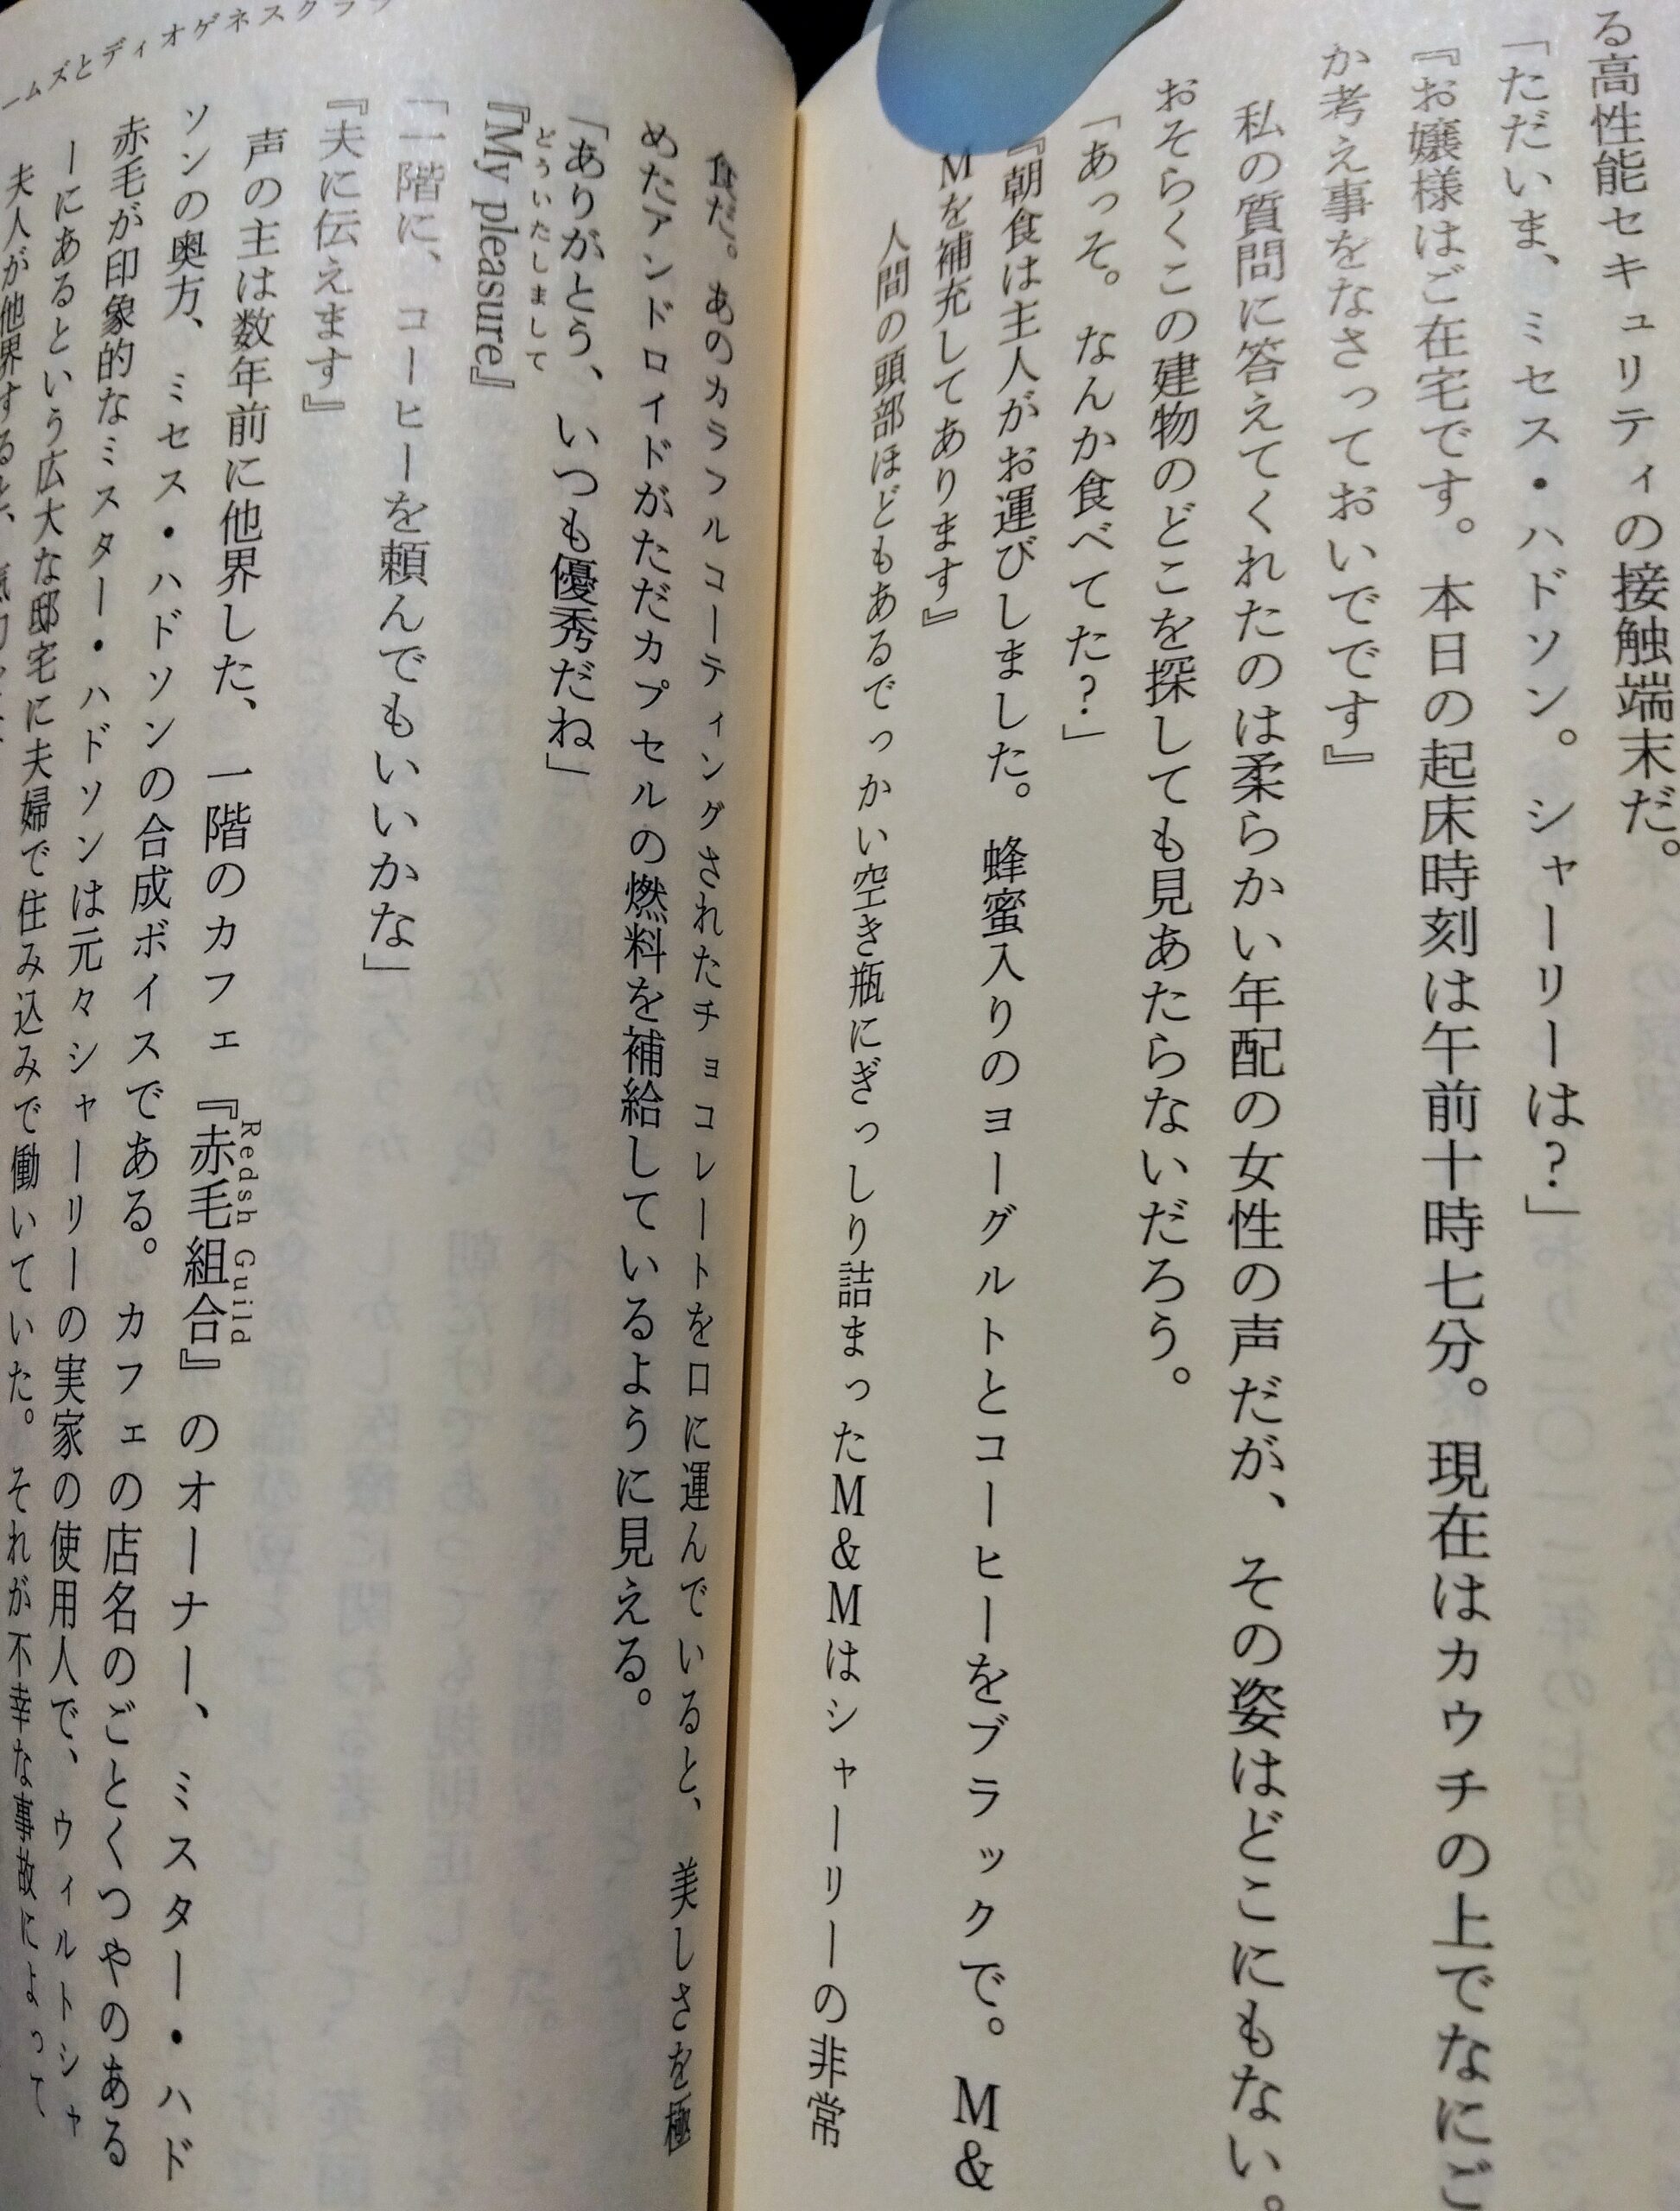 る高性能セキュリティの接触端末だ。
「ただいま、ミセス・ハドソン。シャーリーは？」
『お嬢様はご在宅です。本日の起床時刻は午前十時七分。現在はカウチの上でなにご
か考え事をなさっておいでです』
私の質問に答えてくれたのは柔らかい年配の女性の声だが、その姿はどこにもない。
おそらくこの建物のどこを探しても見あたらないだろう。
「あっそ。なんか食べてた？」
『朝食は主人がお運びしました。蜂蜜入りのヨーグルトとコーヒーをブラックで。M&
Mを補充してあります』
人間の頭部ほどもあるでっかい空き瓶にぎっしり詰まったM&Mはシャーリーの非常
食だ。あのカラフルコーティングされたチョコレートを口に運んでいると、美しさを極
めたアンドロイドがただカプセルの燃料を補給しているように見える。
「ありがとう、いつも優秀だね」
どういたしまして
『My pleasure』
「一階に、コーヒーを頼んでもいいかな」
『夫に伝えます』
声の主は数年前に他界した、一階のカフェ『赤毛組合』のオーナー、ミスター・ハド
Redsh Guild
ソンの奥方、ミセス・ハドソンの合成ボイスである。カフェの店名のごとくつやのある
赤毛が印象的なミスター・ハドソンは元々シャーリーの実家の使用人で、ウィルトシャ
ーにあるという広大な邸宅に夫婦で住み込みで働いていた。それが不幸な事故によって
夫人が他界すると、
ームズとディオゲネスクラブ